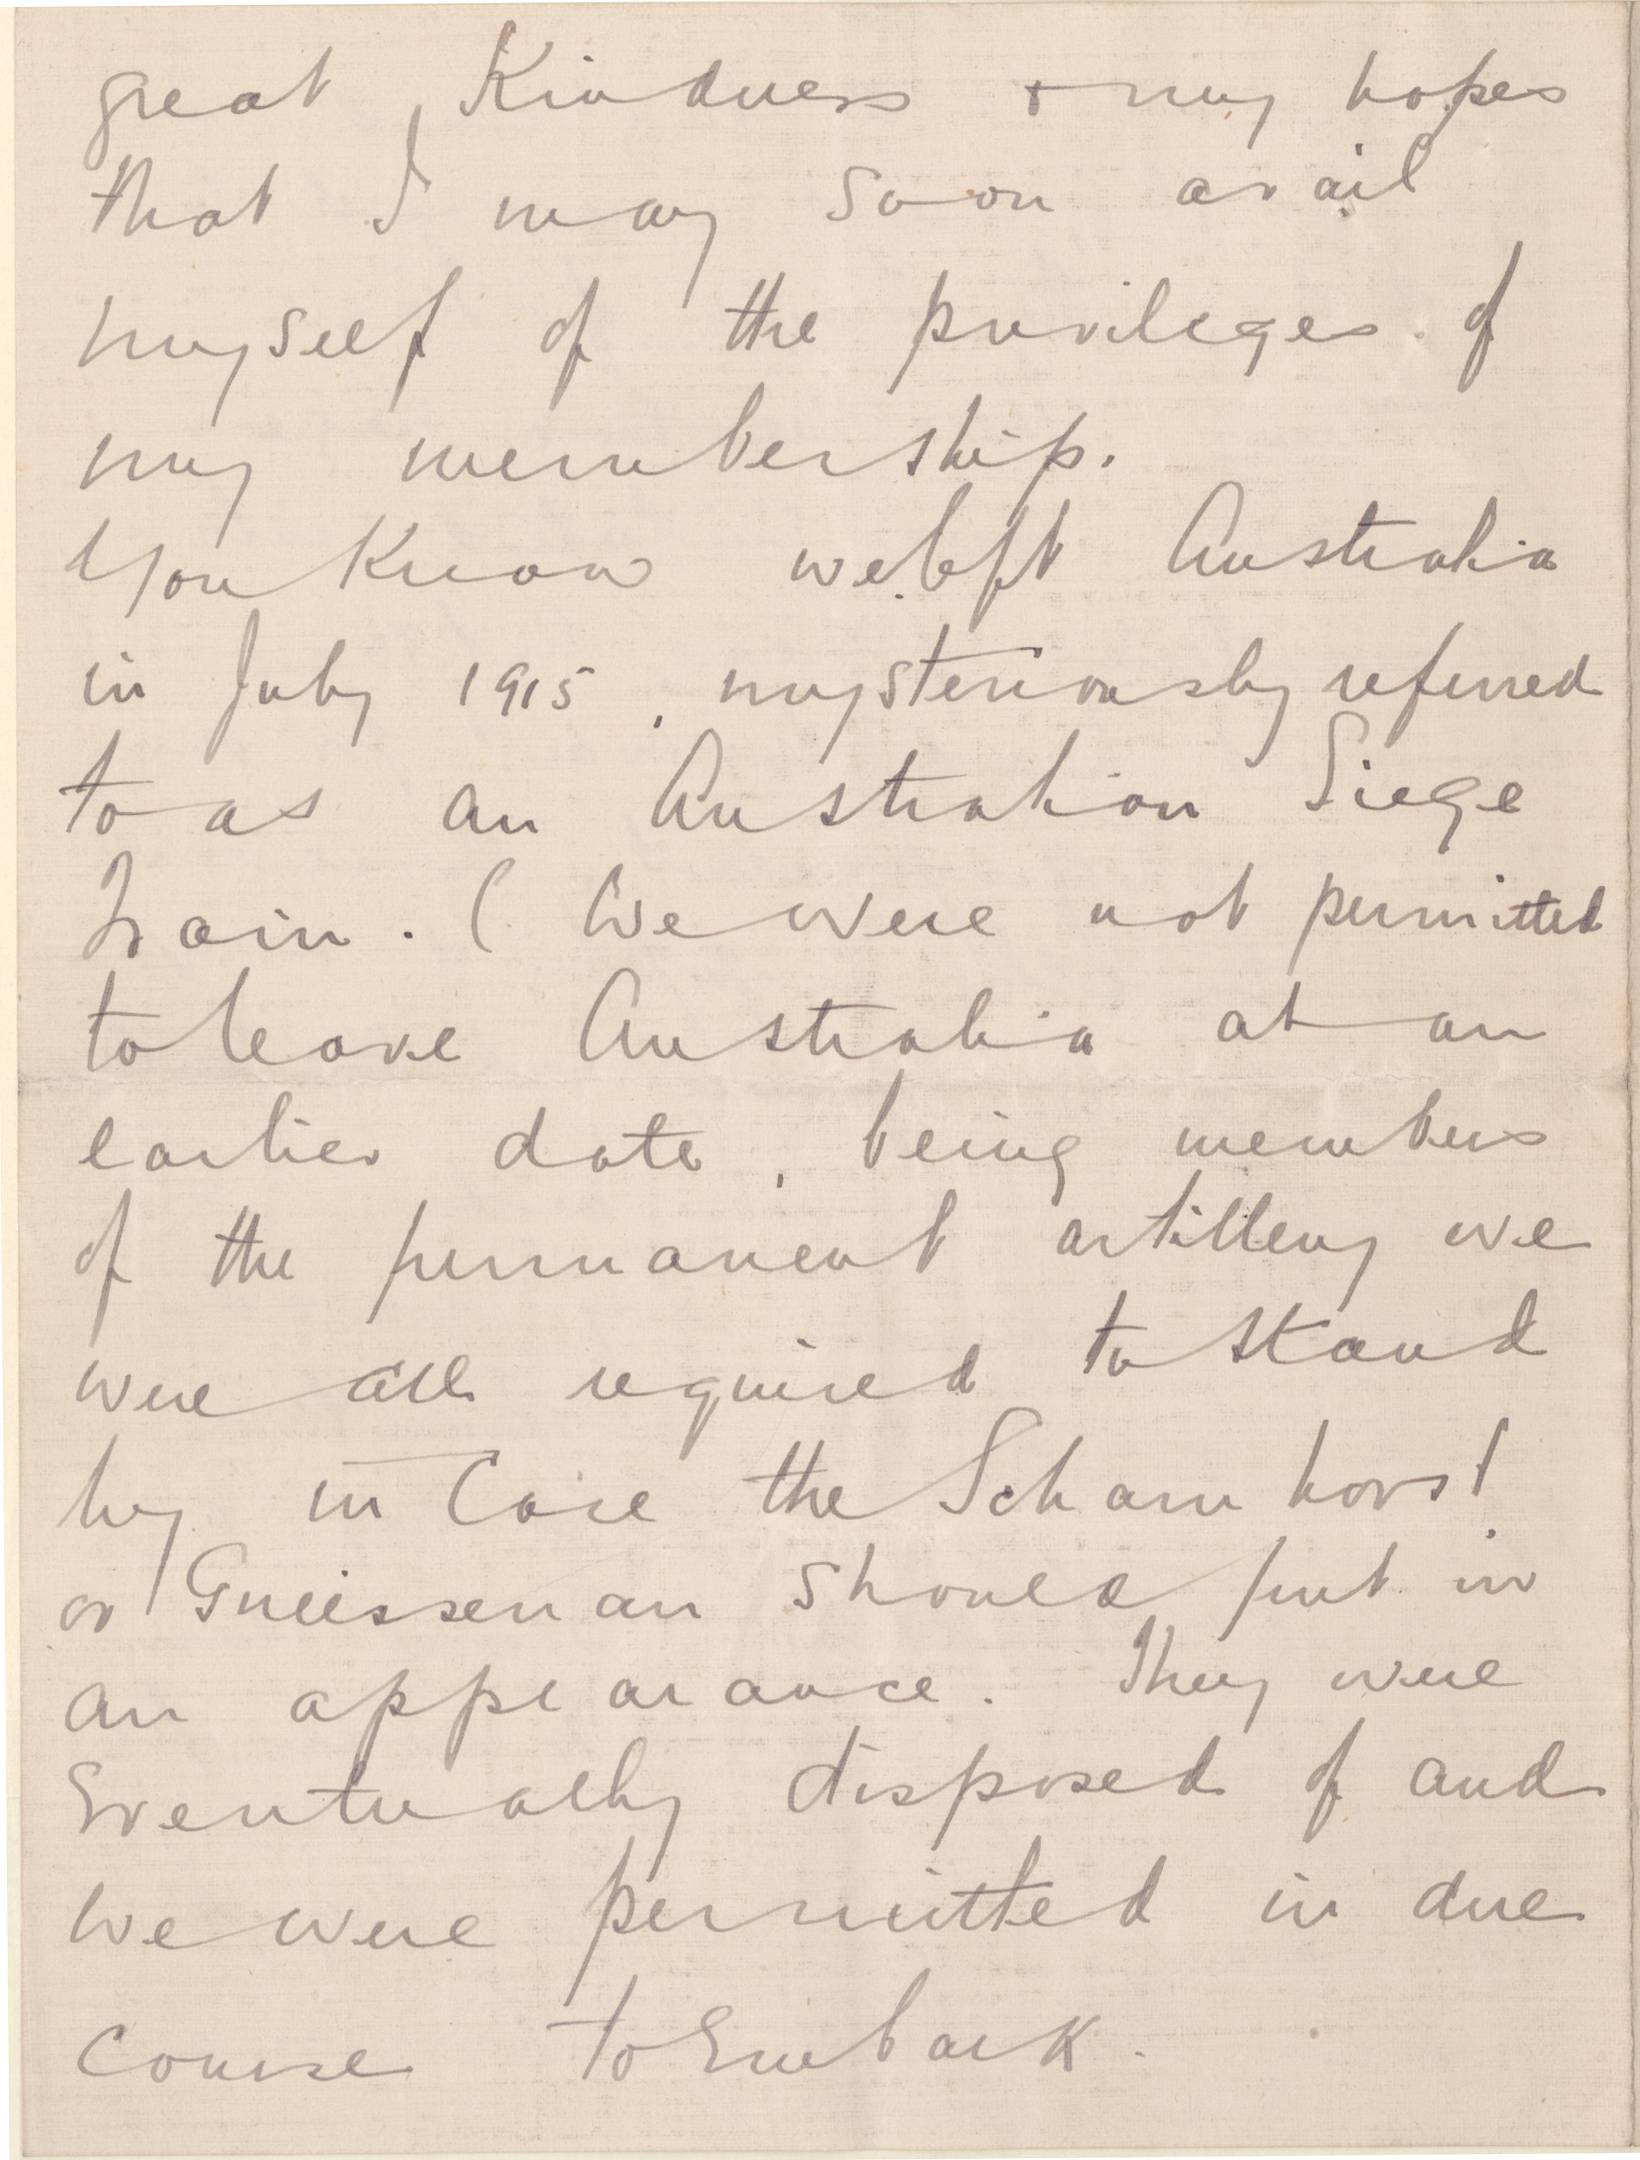 great Kindness + my hopes
that I may soon avail
myself of the privileges of
my membership.
You Know we left Australia
in July 1915, mysteriously referred
to as an Australian Siege
Train. ( We were not permitted
to leave Australia at an
earlier date, being members
of the permanent artillery we
were all required to stand
by in Case the Scharnhorst
or Gneissenau should put in
an appearance. They were
Eventually disposed of and
we were permitted in due
course to Embark.